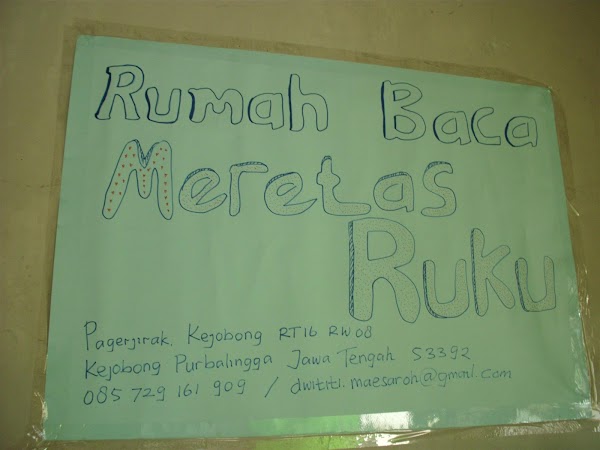 Rumah Baca
Meretas
Ruku
Pagerjirak, Kejobong RT16 RW08
Kejobong Purbalingga Jawa Tengah 53392
085 729 161 909 / dwititi.maesaroh@gmail.com